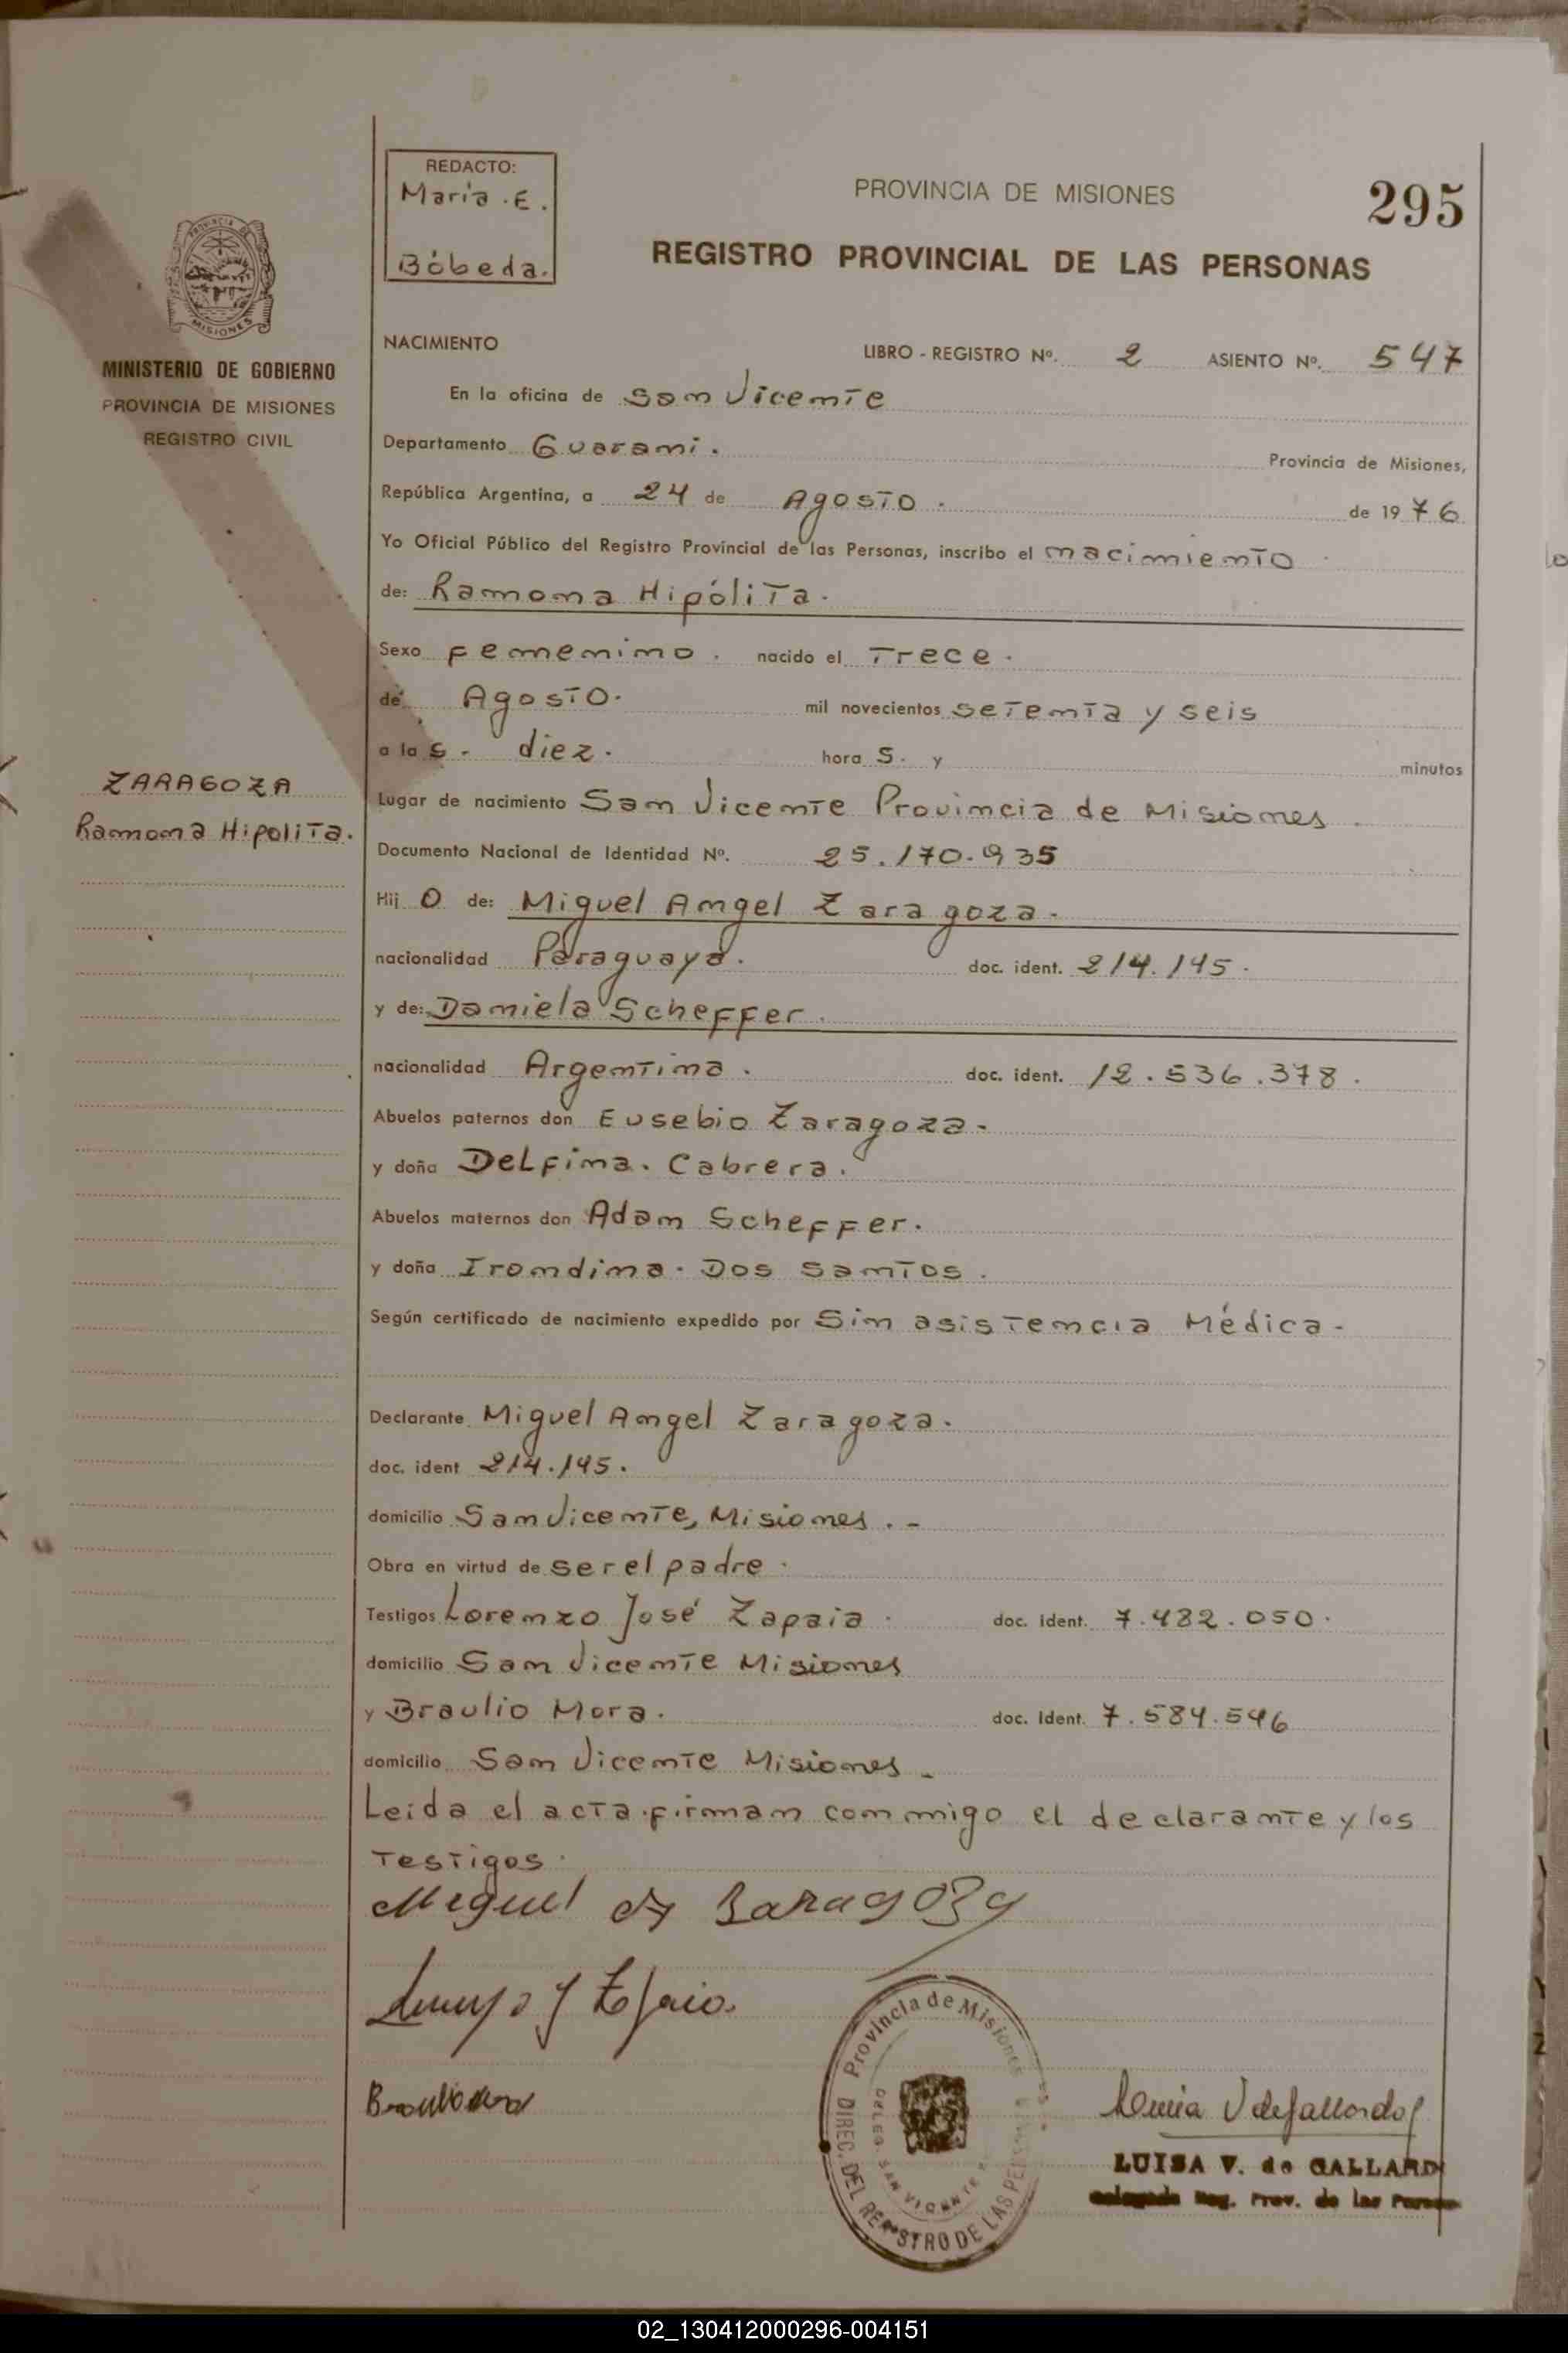 REDACTO:
María E.
Bóbeda.
PROVINCIA DE MISIONES
295
REGISTRO PROVINCIAL DE LAS PERSONAS
PROVINCIA DE
MISIONES
MINISTERIO DE GOBIERNO
PROVINCIA DE MISIONES
REGISTRO CIVIL
NACIMIENTO
LIBRO - REGISTRO Nº. 2 ASIENTO Nº. 547
En la oficina de San Vicente
Departamento Guaraní. Provincia de Misiones,
República Argentina, a 24 de Agosto. de 1976
Yo Oficial Público del Registro Provincial de las Personas, inscribo el nacimiento
de: Ramona Hipólita.
Sexo femenino. nacido el Trece.
de Agosto. mil novecientos setenta y seis
a las. diez. horas. y minutos
ZARAGOZA
Ramona Hipolita.
Lugar de nacimiento San Vicente Provincia de Misiones.
Documento Nacional de Identidad Nº. 25.170.935
Hijo de: Miguel Angel Zaragoza.
nacionalidad Paraguaya. doc. ident. 214.145.
y de: Daniela Scheffer.
nacionalidad Argentina. doc. ident. 12.536.378.
Abuelos paternos don Eusebio Zaragoza.
y doña Delfina. Cabrera.
Abuelos maternos don Adan Scheffer.
y doña Irondina. Dos Santos.
Según certificado de nacimiento expedido por Sin asistencia Médica.
Declarante Miguel Angel Zaragoza.
doc. ident 214.145.
domicilio San Vicente, Misiones. -
Obra en virtud de ser el padre.
Testigos Lorenzo José Zapaia. doc. ident. 7.482.050.
domicilio San Vicente Misiones
y Braulio Mora. doc. ident. 7.584.546
domicilio San Vicente Misiones.
Leída el acta firman conmigo el declarante y los
Testigos.
Miguel A Zaragoza
Braulio Mora
Provincia de Misiones
DIREC. DEL REGISTRO DE LAS PERSONAS
DELEG. SAN VICENTE
Luisa V de Gallardo
LUISA V. de GALLARD
Delegada Reg. Prov. de las Person
02_130412000296-004151